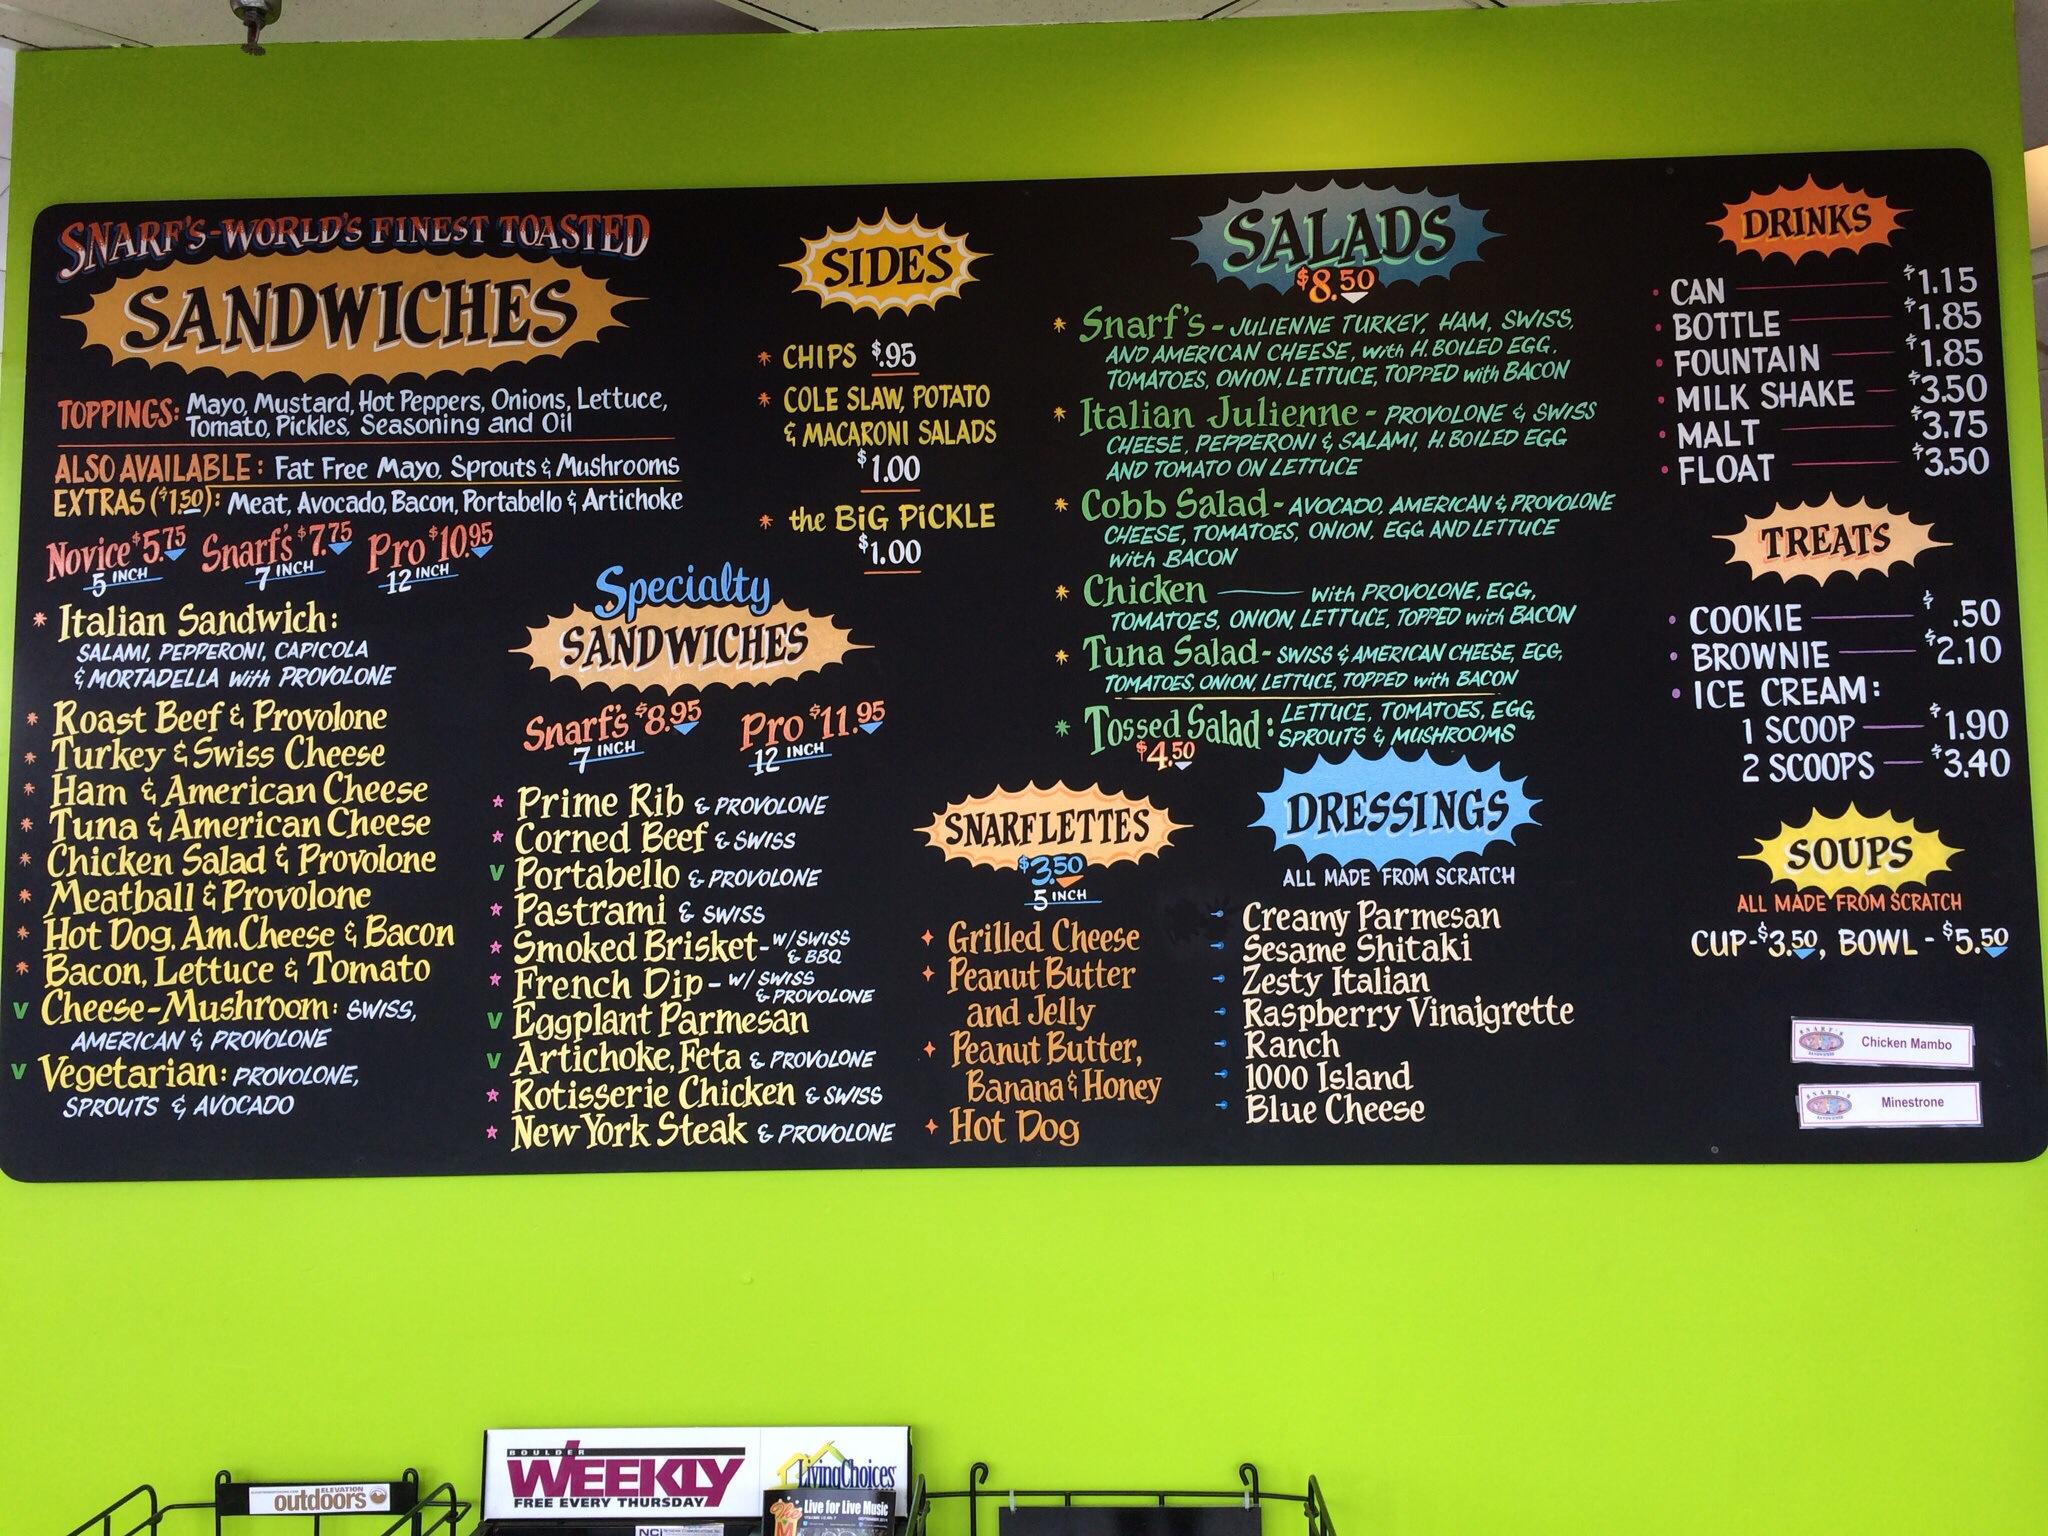 SNARF'S-WORLD'S FINEST TOASTED
SANDWICHES
TOPPINGS: Mayo, Mustard, Hot Peppers, Onions, Lettuce,
Tomato, Pickles, Seasoning and Oil
ALSO AVAILABLE: Fat Free Mayo, Sprouts & Mushrooms
EXTRAS ($1.50): Meat, Avocado, Bacon, Portabello & Artichoke
Novice $5.75 Snarf's $7.75 Pro $10.95
5 INCH 7 INCH 12 INCH
Italian Sandwich:
SALAMI, PEPPERONI, CAPICOLA
& MORTADELLA with PROVOLONE
Roast Beef & Provolone
Turkey & Swiss Cheese
Ham & American Cheese
Tuna & American Cheese
Chicken Salad & Provolone
Meatball & Provolone
Hot Dog, Am. Cheese & Bacon
Bacon, Lettuce & Tomato
V Cheese-Mushroom: SWISS,
AMERICAN & PROVOLONE
V Vegetarian: PROVOLONE,
SPROUTS & AVOCADO
Specialty
SANDWICHES
Snarf's $8.95 Pro $11.95
7 INCH 12 INCH
Prime Rib & PROVOLONE
Corned Beef & SWISS
V Portabello & PROVOLONE
Pastrami & SWISS
Smoked Brisket - W/ SWISS
& BBQ
French Dip - W/ SWISS
& PROVOLONE
V Eggplant Parmesan
V Artichoke, Feta & PROVOLONE
Rotisserie Chicken & SWISS
New York Steak & PROVOLONE
SIDES
CHIPS $.95
COLE SLAW, POTATO
& MACARONI SALADS
$1.00
the BiG PiCKLE
$1.00
SALADS
$8.50
Snarf's - JULIENNE TURKEY, HAM, SWISS,
AND AMERICAN CHEESE, with H. BOILED EGG,
TOMATOES, ONION, LETTUCE, TOPPED with BACON
Italian Julienne - PROVOLONE & SWISS
CHEESE, PEPPERONI & SALAMI, H. BOILED EGG
AND TOMATO ON LETTUCE
Cobb Salad - AVOCADO, AMERICAN & PROVOLONE
CHEESE, TOMATOES, ONION, EGG AND LETTUCE
with BACON
Chicken with PROVOLONE, EGG,
TOMATOES, ONION, LETTUCE, TOPPED with BACON
Tuna Salad - SWISS & AMERICAN CHEESE, EGG,
TOMATOES, ONION, LETTUCE, TOPPED with BACON
Tossed Salad: LETTUCE, TOMATOES, EGG,
$4.50 SPROUTS & MUSHROOMS
SNARFLETTES
$3.50
5 INCH
Grilled Cheese
Peanut Butter
and Jelly
Peanut Butter,
Banana & Honey
Hot Dog
DRESSINGS
ALL MADE FROM SCRATCH
Creamy Parmesan
Sesame Shitaki
Zesty Italian
Raspberry Vinaigrette
Ranch
1000 Island
Blue Cheese
DRINKS
CAN $1.15
BOTTLE $1.85
FOUNTAIN $1.85
MILK SHAKE $3.50
MALT $3.75
FLOAT $3.50
TREATS
COOKIE $.50
BROWNIE $2.10
ICE CREAM:
1 SCOOP $1.90
2 SCOOPS $3.40
SOUPS
ALL MADE FROM SCRATCH
CUP-$3.50, BOWL-$5.50
SNARF'S
Chicken Mambo
SNARF'S
Minestrone
ELEVATION
outdoors
BOULDER
WEEKLY
FREE EVERY THURSDAY
LivingChoices
Live for Live Music
NCI